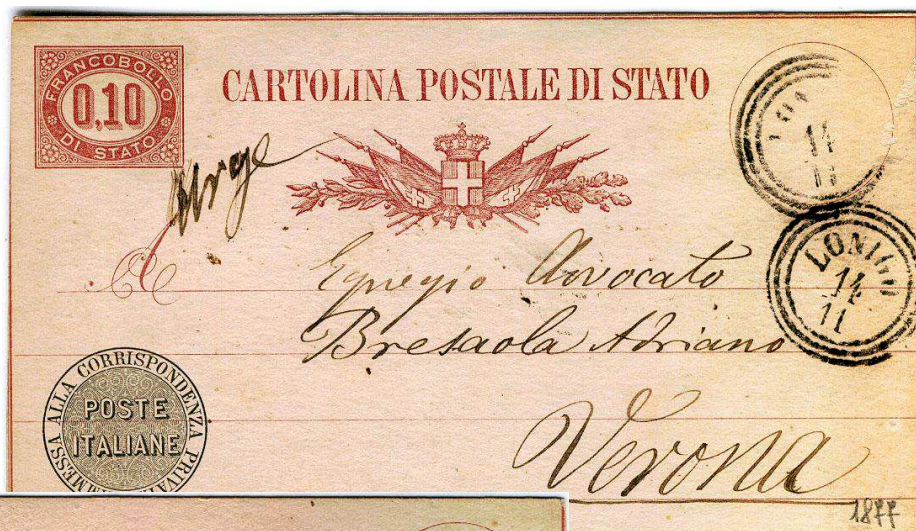 FRANCOBOLLO
0,10
DI STATO
CARTOLINA POSTALE DI STATO
14
11
Urge
LONIGO
14
11
A
Egregio Avvocato
Bresaola Adriano
Verona
ALLA CORRISPONDENZA
POSTE
ITALIANE
1877